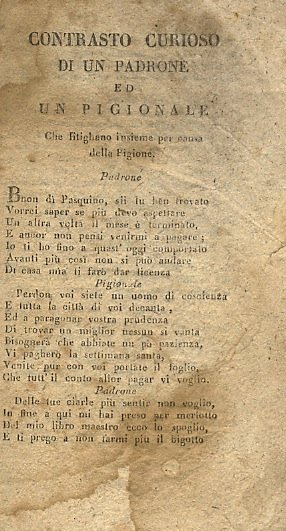 CONTRASTO CURIOSO
DI UN PADRONE
ED
UN PIGIONALE
Che litighano insieme per causa
della Pigione.
Padrone
Buon dì Pasquino, sii tu ben trovato
Vorrei saper se più devo aspettare
Un altra volta il mese è terminato,
E ancor non pensi venirmi a pagare;
Io ti ho fino a quast' oggi comportato
Avanti più così non si può andare
Di casa mia ti farò dar licenza
Pigionale
Perdon voi siete un uomo di coscienza
E tutta la città di voi decanta,
Ed a paragonar vostra prudenza
Di trovar un miglior nessun si vanta
Bisognerà che abbiate un pò pazienza,
Vi pagherò la settimana santa,
Venite pur con voi portate il foglio,
Che tutt' il conto allor pagar vi voglio.
Padrone
Delle tue ciarle più sentir non voglio,
In fine a qui mi hai preso per merlotto
Del mio libro maestro ecco lo spoglio,
E ti prego a non farmi più il bigotto